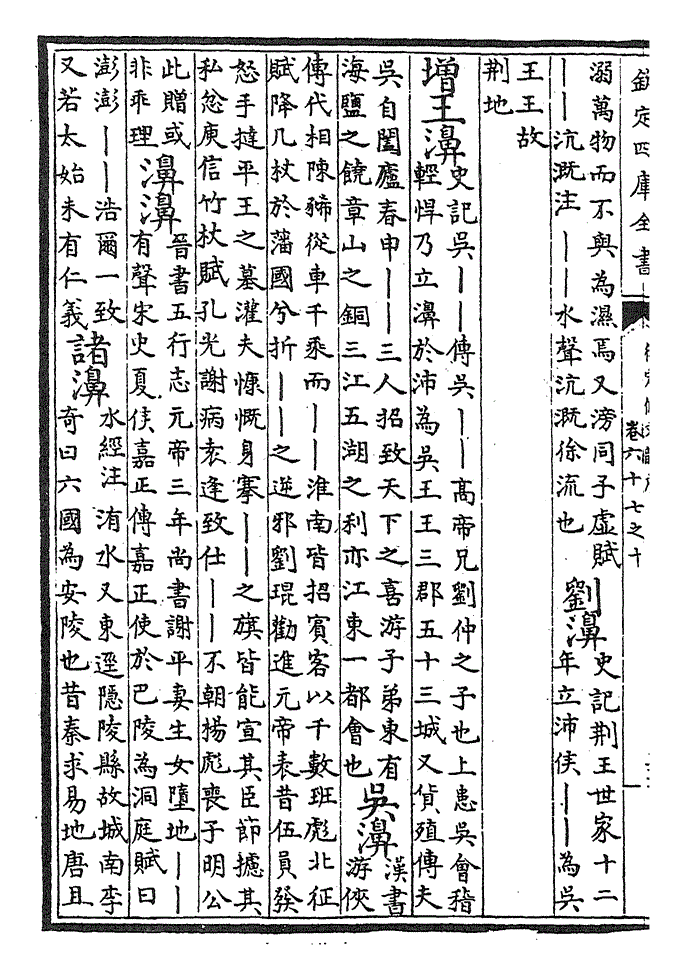 欽定四庫全書
卷六十七之十
溺萬物而不與為濕焉又滂同子虛賦
——沆溉注——水聲沆溉徐流也
劉濞
史記荆王世家十二
年立沛侯——為吳
王王故
荆地
增王濞
史記吳——傳吳——高帝兄劉仲之子也上患吳會稽
輕悍乃立濞於沛為吳王王三郡五十三城又貨殖傳夫
吳自闔廬春申——三人招致天下之喜游子弟東有
海鹽之饒章山之銅三江五湖之利亦江東一都會也
吳濞
漢書
游俠
傳代相陳豨從車千乘而——淮南皆招賓客以千數班彪北征
賦降几杖於藩國兮折——之逆邪劉琨勸進元帝表昔伍員發
怒手撻平王之墓灌夫慷慨身搴——之旗皆能宣其臣節攄其
私忿庾信竹杖賦孔光謝病袁逢致仕——不朝揚彪喪子明公
此贈或
非乖理
濞濞
晉書五行志元帝三年尚書謝平妻生女墮地——
有聲宋史夏侯嘉正傳嘉正使於巴陵為洞庭賦曰
澎澎——浩爾一致
又若太始未有仁義
諸濞
水經注洧水又東逕隱陵縣故城南李
奇曰六國為安陵也昔秦求易地唐且